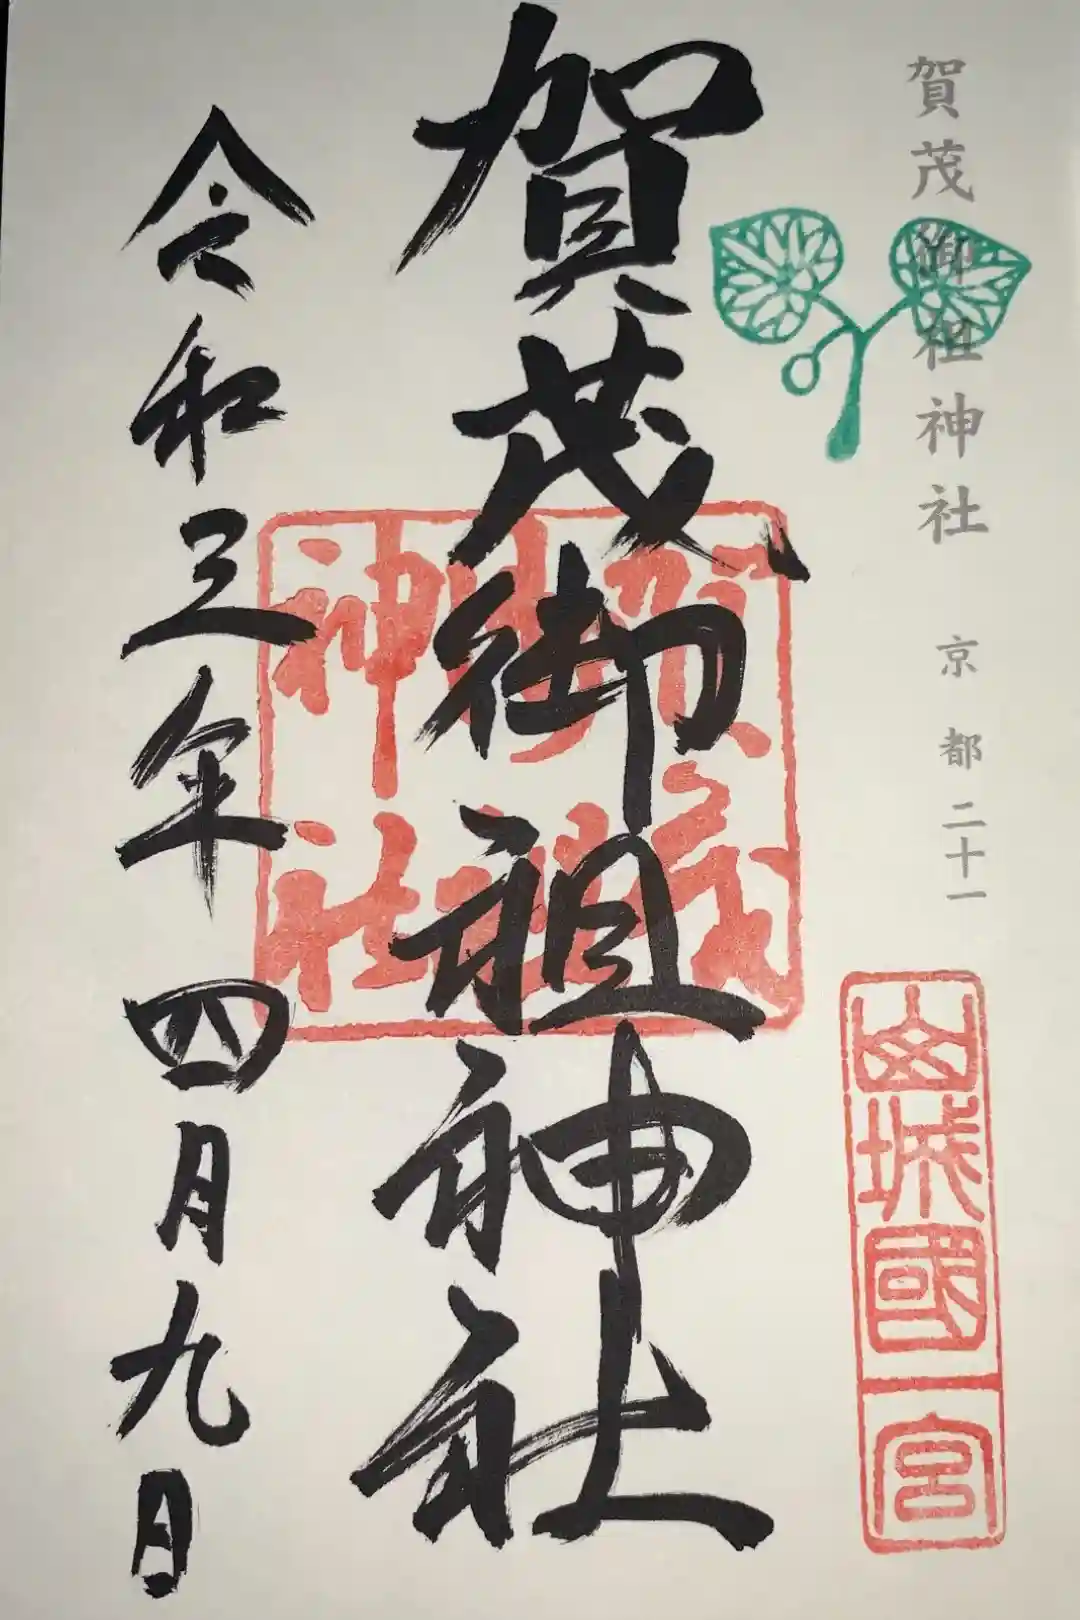 賀茂御祖神社 京都二十一
山城國一宮
賀茂御祖神社
賀茂御祖神社
令和三年四月九日